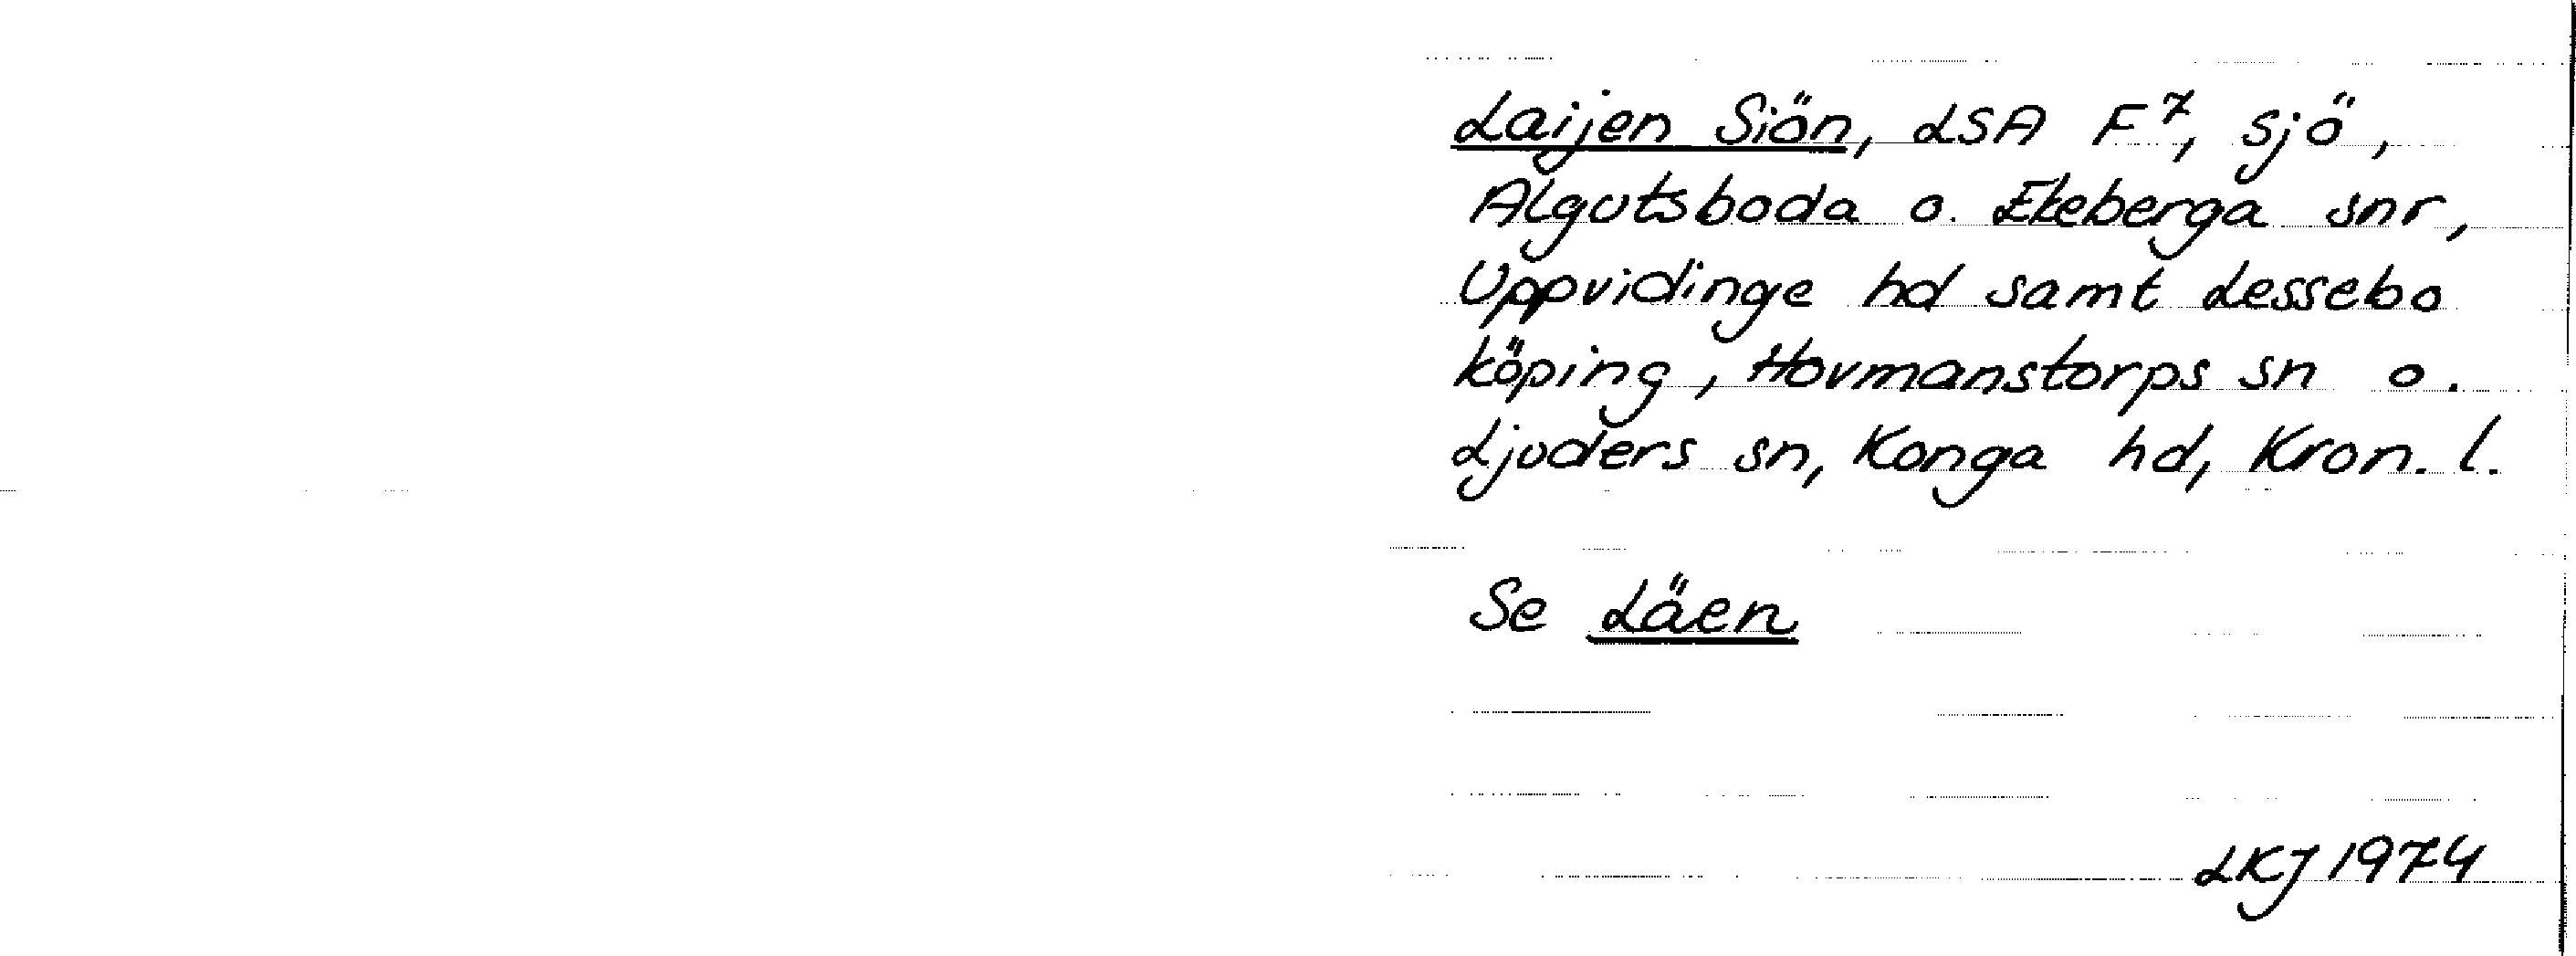 Laijen Siön, LSA F7, sjö,
Algutsboda o. Ekeberga snr,
Uppvidinge hd samt Lessebo
köping, Hovmanstorps sn o.
Ljuders sn, Konga hd, Kron. l.
Se Läen
LKJ 1974